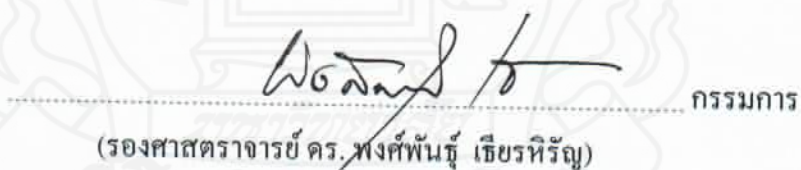 กรรมการ
(รองศาสตราจารย์ ดร. พงศ์พันธุ์ เธียรหิรัญ)